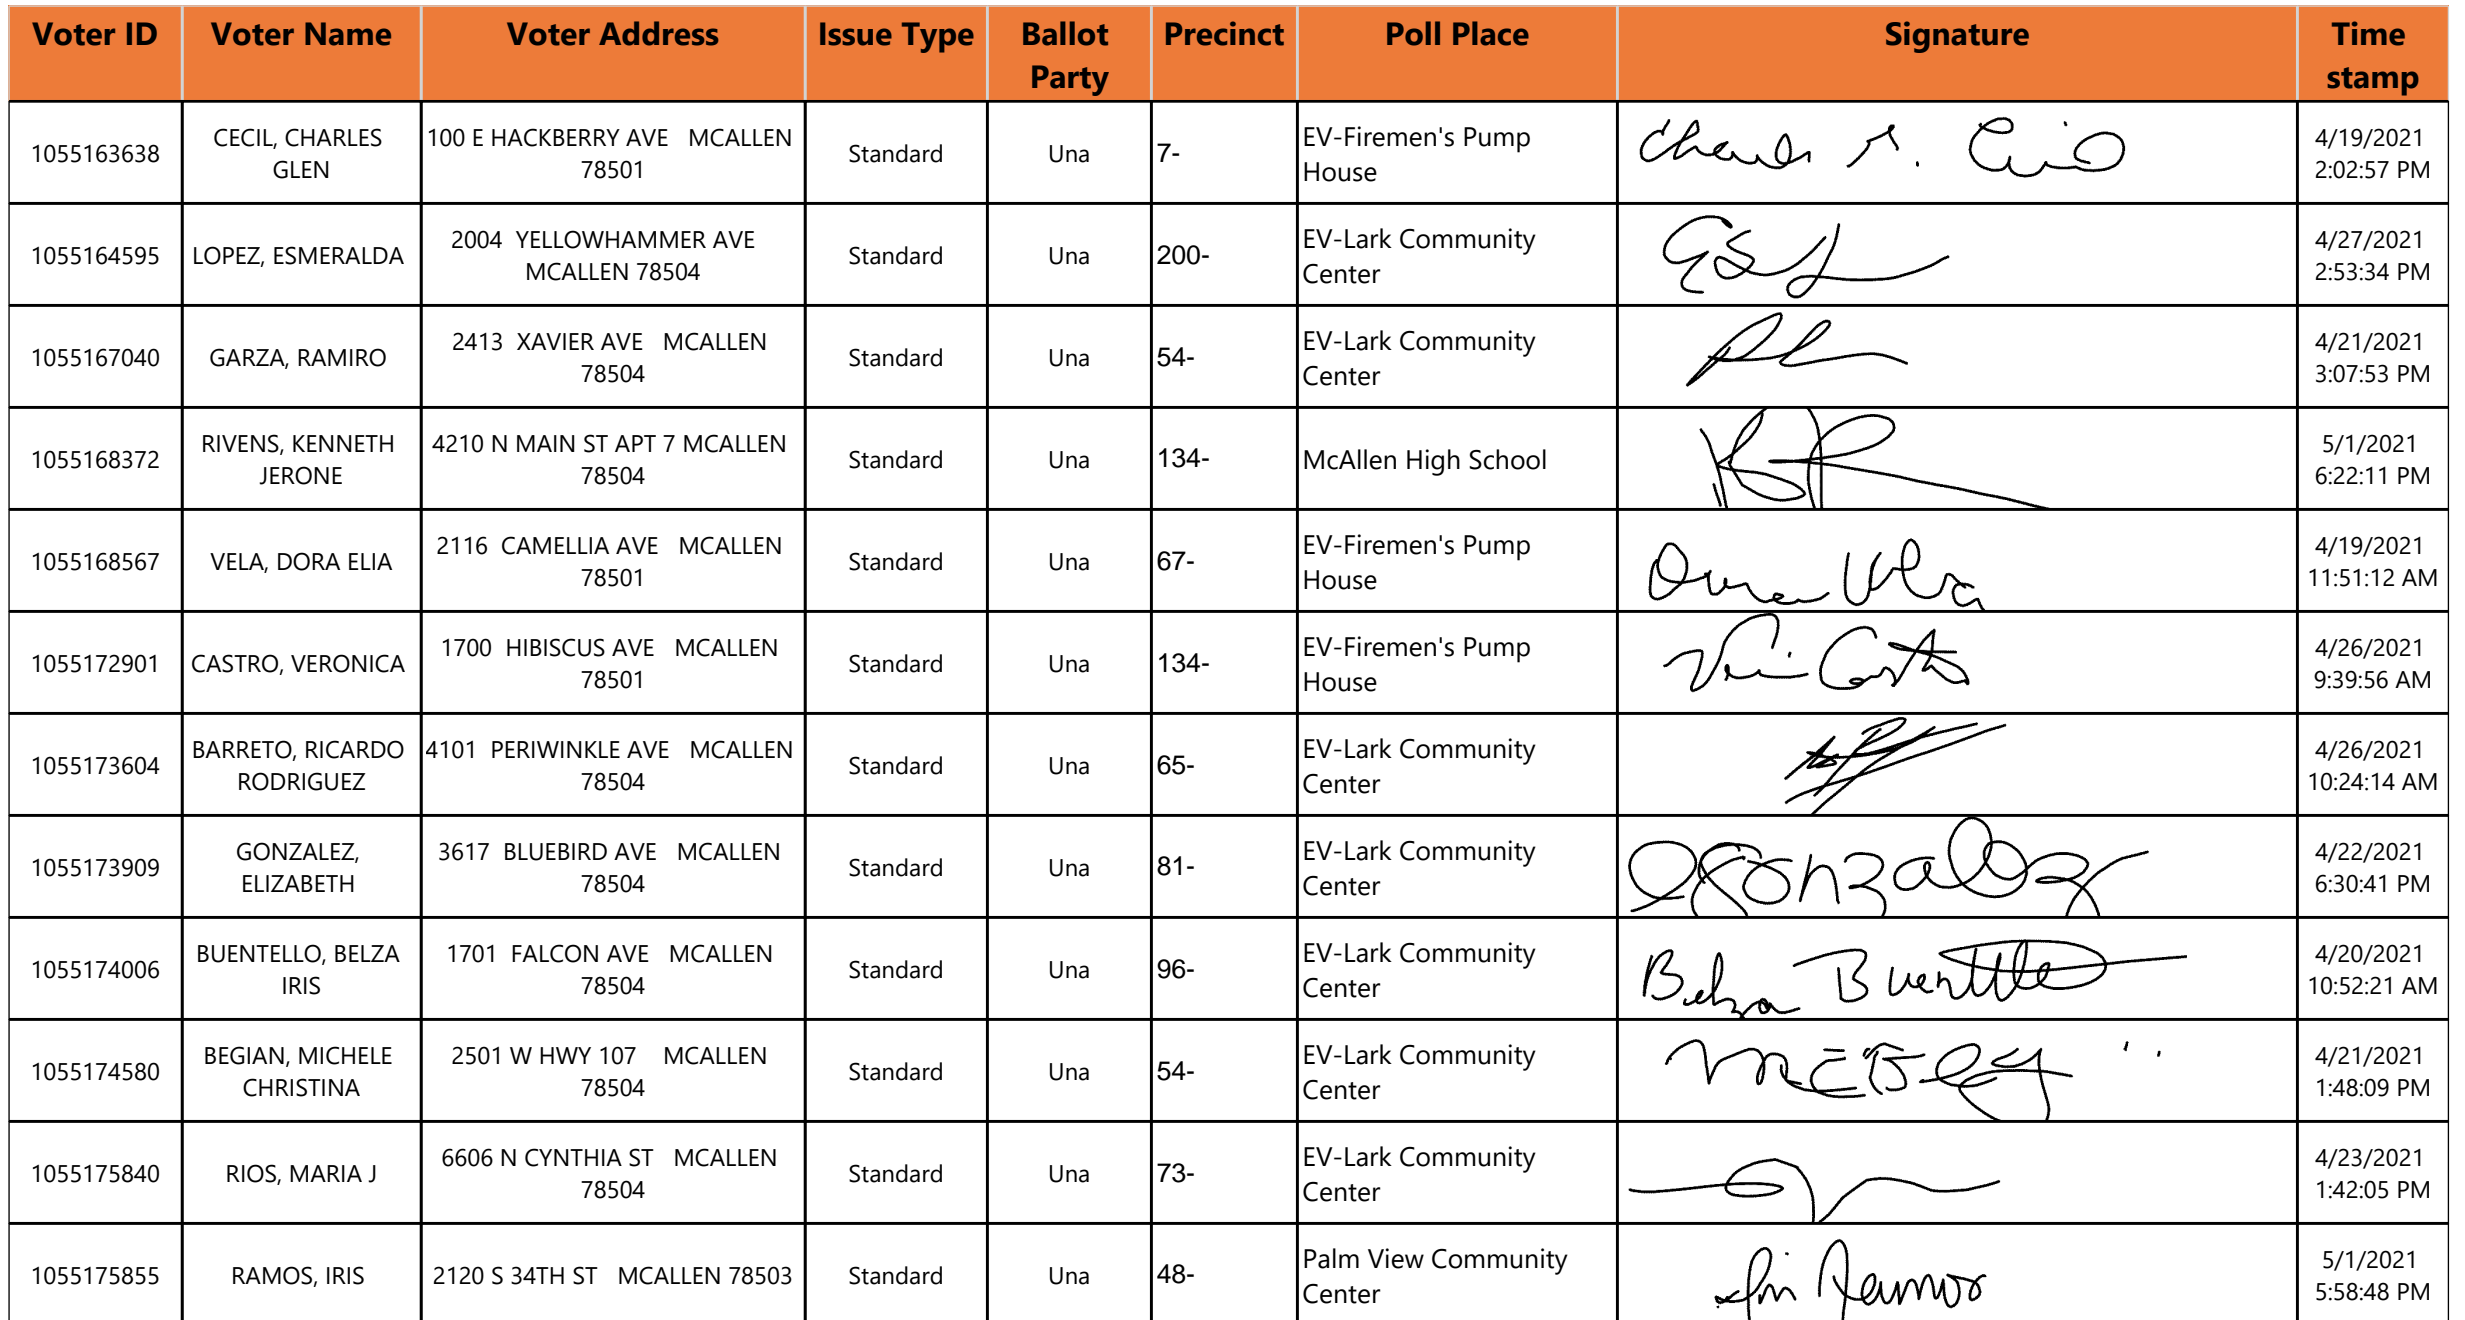 Voter ID Voter Name Voter Address Issue Type Ballot Party Precinct Poll Place Signature Time stamp
1055163638 CECIL, CHARLES GLEN 100 E HACKBERRY AVE MCALLEN 78501 Standard Una 7- EV-Firemen's Pump House 4/19/2021 2:02:57 PM
1055164595 LOPEZ, ESMERALDA 2004 YELLOWHAMMER AVE MCALLEN 78504 Standard Una 200- EV-Lark Community Center 4/27/2021 2:53:34 PM
1055167040 GARZA, RAMIRO 2413 XAVIER AVE MCALLEN 78504 Standard Una 54- EV-Lark Community Center 4/21/2021 3:07:53 PM
1055168372 RIVENS, KENNETH JERONE 4210 N MAIN ST APT 7 MCALLEN 78504 Standard Una 134- McAllen High School 5/1/2021 6:22:11 PM
1055168567 VELA, DORA ELIA 2116 CAMELLIA AVE MCALLEN 78501 Standard Una 67- EV-Firemen's Pump House 4/19/2021 11:51:12 AM
1055172901 CASTRO, VERONICA 1700 HIBISCUS AVE MCALLEN 78501 Standard Una 134- EV-Firemen's Pump House 4/26/2021 9:39:56 AM
1055173604 BARRETO, RICARDO RODRIGUEZ 4101 PERIWINKLE AVE MCALLEN 78504 Standard Una 65- EV-Lark Community Center 4/26/2021 10:24:14 AM
1055173909 GONZALEZ, ELIZABETH 3617 BLUEBIRD AVE MCALLEN 78504 Standard Una 81- EV-Lark Community Center egonzalez 4/22/2021 6:30:41 PM
1055174006 BUENTELLO, BELZA IRIS 1701 FALCON AVE MCALLEN 78504 Standard Una 96- EV-Lark Community Center Belza Buentello 4/20/2021 10:52:21 AM
1055174580 BEGIAN, MICHELE CHRISTINA 2501 W HWY 107 MCALLEN 78504 Standard Una 54- EV-Lark Community Center 4/21/2021 1:48:09 PM
1055175840 RIOS, MARIA J 6606 N CYNTHIA ST MCALLEN 78504 Standard Una 73- EV-Lark Community Center 4/23/2021 1:42:05 PM
1055175855 RAMOS, IRIS 2120 S 34TH ST MCALLEN 78503 Standard Una 48- Palm View Community Center 5/1/2021 5:58:48 PM